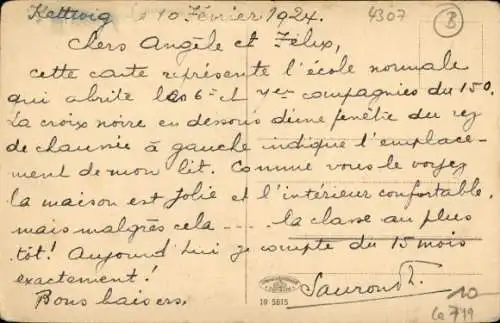 Kettwig le 10 Février 1924.
4307
B
Chers Angèle et Félix,
cette carte représente l'école normale
qui abrite les 6e et 7e compagnies du 150.
La croix noire en dessous d'une fenêtre du rez
de chaussée à gauche indique l'emplace-
ment de mon lit. Comme vous le voyez
la maison est jolie et l'intérieur confortable.
mais malgrès cela .... la classe au plus
tôt! Aujourd'hui je compte du 15 mois
exactement!
Bons baisers.
10 5815
10